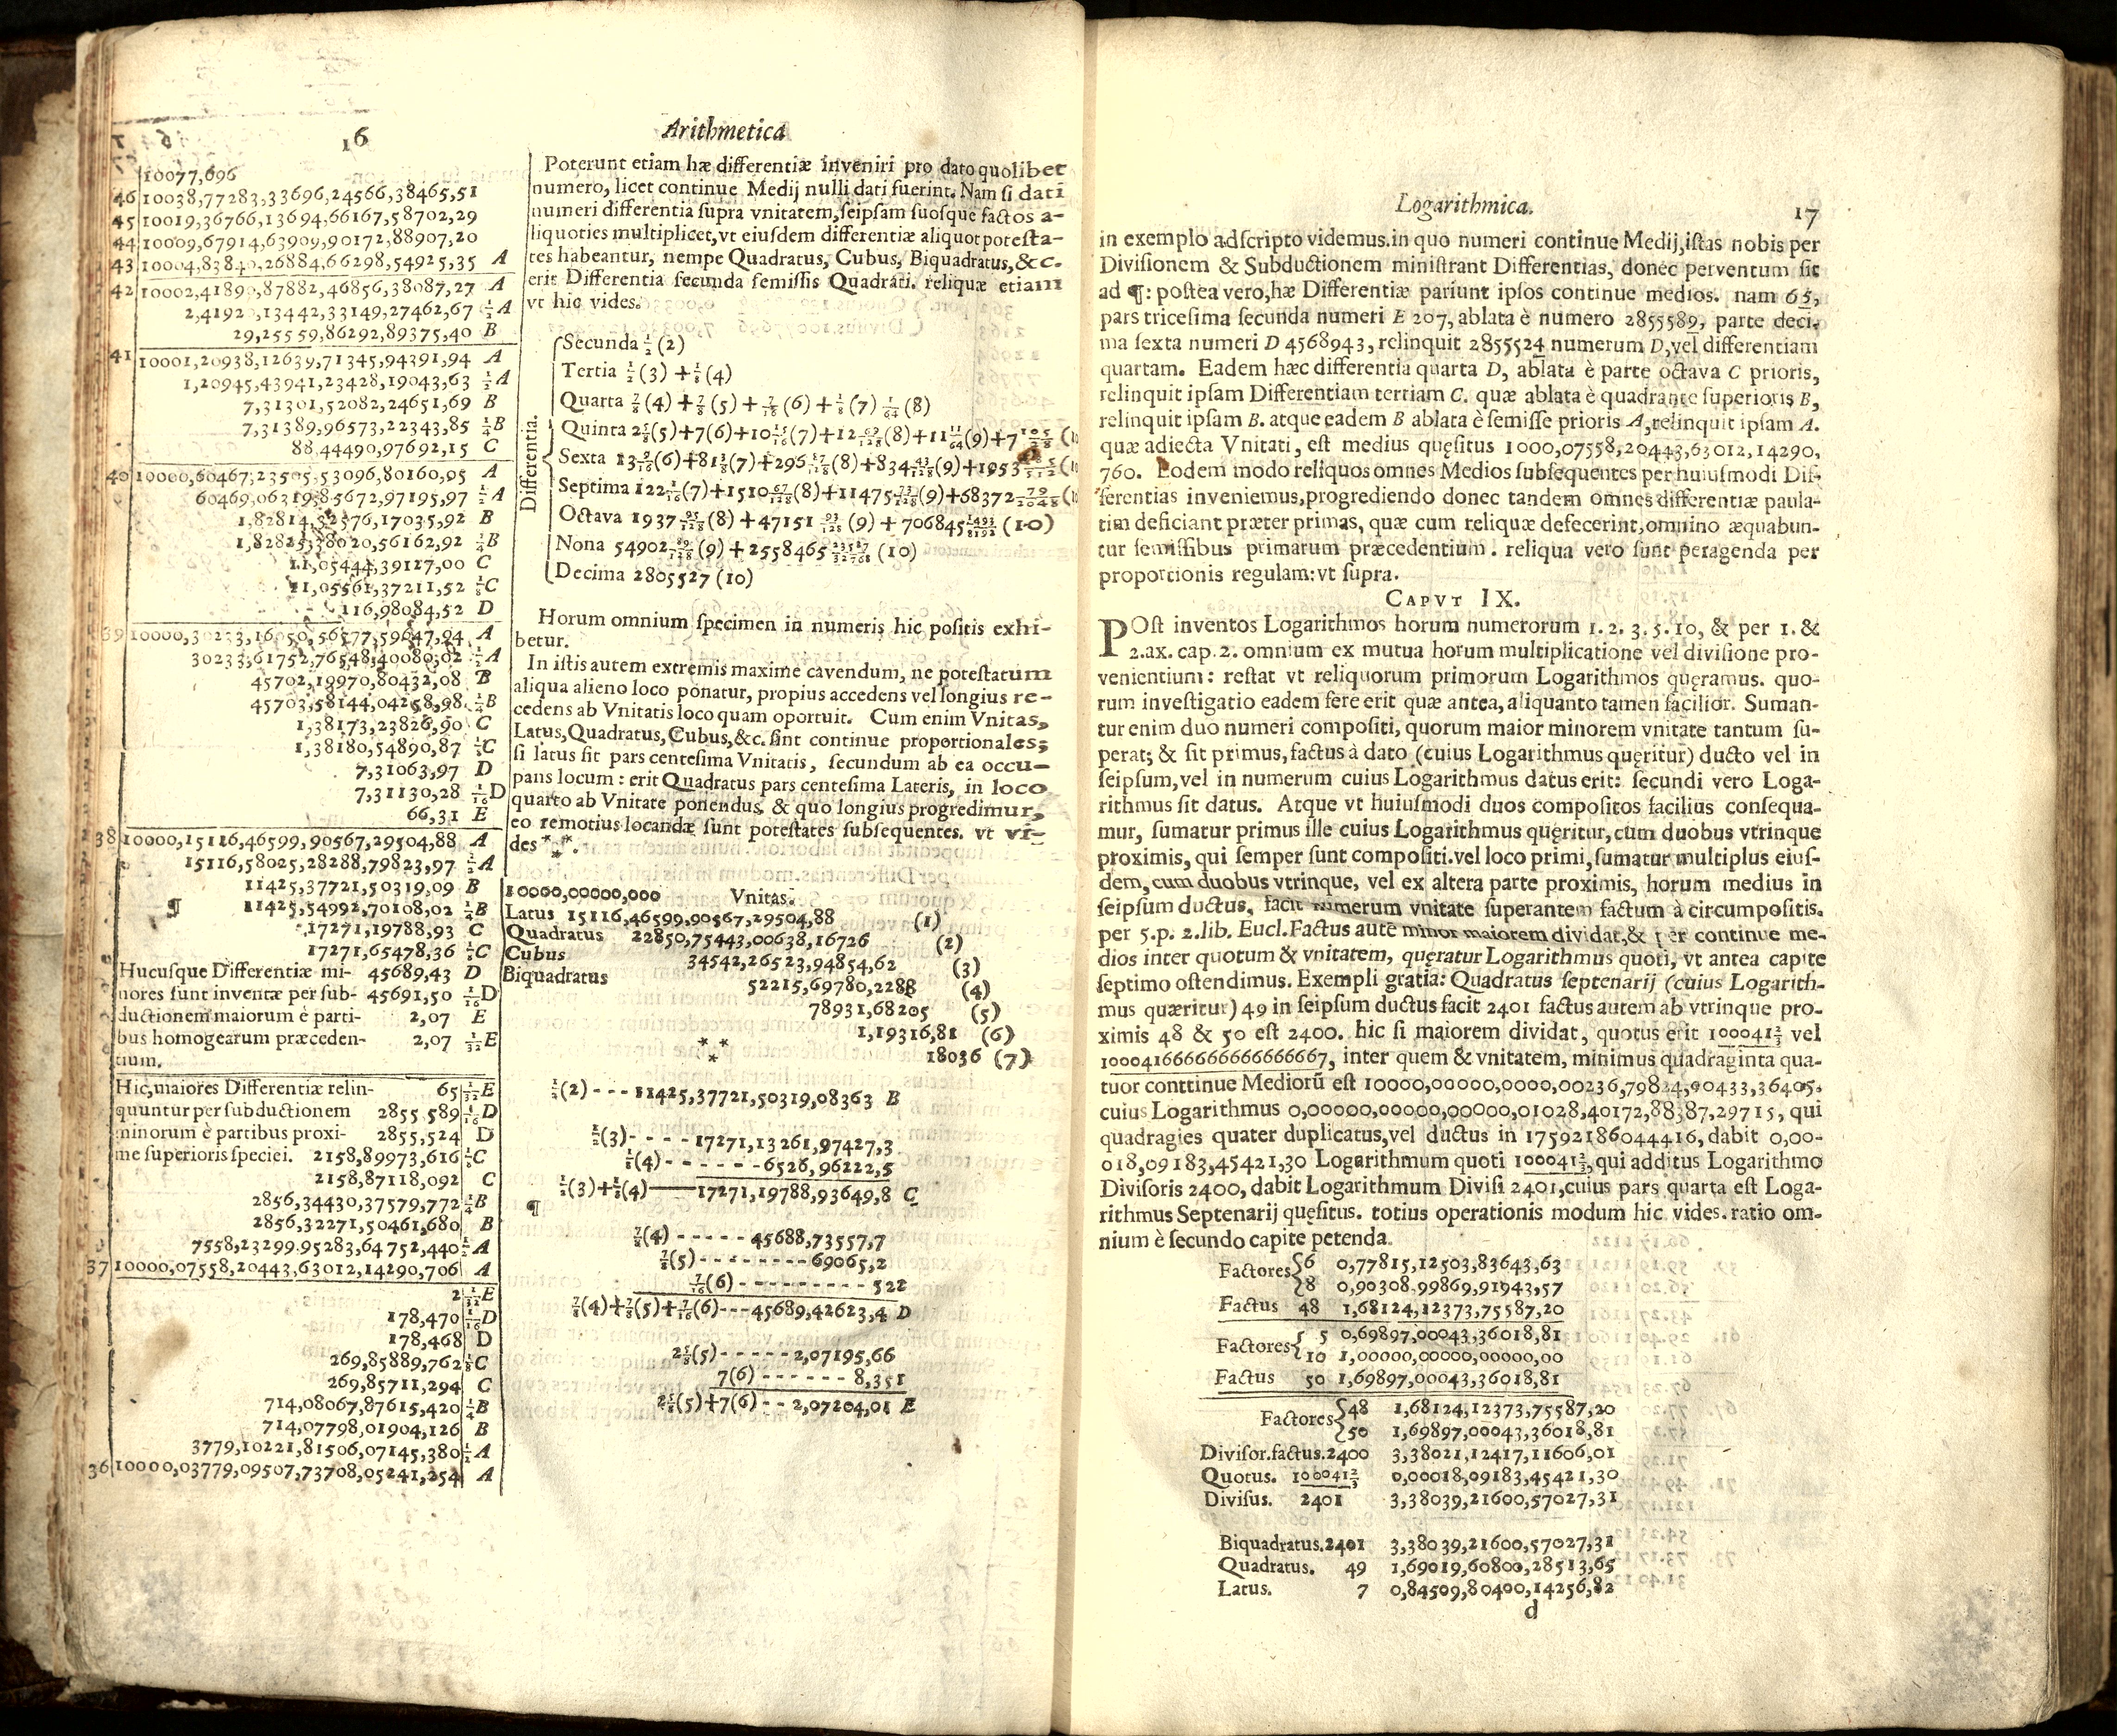 16
Arithmetica
10077,696
46 10038,77283,33696,24566,38465,51
45 10019,36766,13694,66167,58702,29
44 10009,67914,63909,90172,88907,20
43 10004,83840,26884,66298,54925,35 A
42 10002,41890,87882,46856,38087,27 A
2,41920,13442,33149,27462,67 ½A
29,25559,86292,89375,40 B
41 10001,20938,12639,71345,94391,94 A
1,20945,43941,23428,19043,63 ½A
7,31301,52082,24651,69 B
7,31389,96573,22343,85 ¼B
88,44490,97692,15 C
40 10000,60467,23505,53096,80160,95 A
60469,06319,85672,97195,97 ½A
1,82814,32576,17035,92 B
1,82825,38020,56162,92 ¼B
11,05444,39127,00 C
11,05561,37211,52 ⅛C
116,98084,52 D
39 10000,30233,16050,56577,59647,94 A
30233,61752,76548,40080,02 ½A
45702,19970,80432,08 B
45703,58144,04258,98 ¼B
1,38173,23826,90 C
1,38180,54890,87 ⅛C
7,31063,97 D
7,31130,28 1/16D
66,31 E
38 10000,15116,46599,90567,29504,88 A
15116,58025,28288,79823,97 ½A
11425,37721,50319,09 B
¶ 11425,54992,70108,02 ¼B
17271,19788,93 C
17271,65478,36 ⅛C
Hucusque Differentiæ mi- 45689,43 D
nores sunt inventæ per sub- 45691,50 1/16D
ductionem maiorum è parti- 2,07 E
bus homogearum præceden- 2,07 1/32E
tium.
Hic, maiores Differentiæ relin- 65 1/32E
quuntur per subductionem 2855 589 1/16D
minorum è partibus proxi- 2855,524 D
me superioris speciei. 2158,89973,616 ⅛C
2158,87118,092 C
2856,34430,37579,772 ¼B
2856,32271,50461,680 B
7558,23299,95283,64752,440 ½A
37 10000,07558,20443,63012,14290,706 A
2 1/32E
178,470 1/16D
178,468 D
269,85889,762 ⅛C
269,85711,294 C
714,08067,87615,420 ¼B
714,07798,01904,126 B
3779,10221,81506,07145,380 ½A
36 10000,03779,09507,73708,05241,254 A
Poterunt etiam hæ differentiæ inveniri pro dato quolibet
numero, licet continue Medij nulli dati fuerint. Nam si dati
numeri differentia supra vnitatem, seipsam suosque factos a-
liquoties multiplicet, vt eiusdem differentiæ aliquot potesta-
tes habeantur, nempe Quadratus, Cubus, Biquadratus, &c.
erit Differentia secunda semissis Quadrati. reliquæ etiam
vt hic vides.
Differentia.
Secunda ½(2)
Tertia ½(3)+⅛(4)
Quarta ⅞(4)+⅞(5)+7/16(6)+⅛(7) 1/64(8)
Quinta 2⅝(5)+7(6)+10 15/16(7)+12 69/128(8)+11 11/64(9)+7
Sexta 13 9/16(6)+81⅜(7)+296 87/128(8)+834 43/128(9)+1953
Septima 122 1/16(7)+1510 67/128(8)+11475 73/128(9)+68372 79/2048
Octava 1937 95/128(8)+47151 93/128(9)+706845 1493/8192(10)
Nona 54902 89/128(9)+2558465 23587/32768(10)
Decima 2805527 (10)
Horum omnium specimen in numeris hic positis exhi-
betur.
In istis autem extremis maxime cavendum, ne potestatum
aliqua alieno loco ponatur, propius accedens vel longius re-
cedens ab Vnitatis loco quam oportuit. Cum enim Vnitas,
Latus, Quadratus, Cubus, &c. sint continue proportionales;
si latus sit pars centesima Vnitatis, secundum ab ea occu-
pans locum: erit Quadratus pars centesima Lateris, in loco
quarto ab Vnitate ponendus, & quo longius progredimur,
eo remotius locandæ sunt potestates subsequentes. vt vi-
des ***.
10000,00000,000 Vnitas.
Latus 15116,46599,90567,29504,88 (1)
Quadratus 22850,75443,00638,16726 (2)
Cubus 34542,26523,94854,62 (3)
Biquadratus 52215,69780,2288 (4)
78931,68205 (5)
1,19316,81 (6)
*** 18036 (7)
½(2) - - - 11425,37721,50319,08363 B
½(3)- - - - 17271,13261,97427,3
⅛(4)- - - - - - -6526,96222,5
½(3)+⅛(4)——17271,19788,93649,8 C
¶
⅞(4) - - - - - 45688,73557,7
⅞(5)- - - - - - - - 69065,2
7/16(6) - - - - - - - - - 522
⅞(4)+⅞(5)+7/16(6)- - -45689,42623,4 D
2⅝(5)- - - - - 2,07195,66
7(6) - - - - - - 8,351
2⅝(5)+7(6)- - 2,07204,01 E
Logarithmica. 17
in exemplo adscripto videmus. in quo numeri continue Medij, istas nobis per
Divisionem & Subductionem ministrant Differentias, donec perventum sit
ad ¶: postea vero, hæ Differentiæ pariunt ipsos continue medios. nam 65,
pars tricesima secunda numeri E 207, ablata è numero 2855589, parte deci-
ma sexta numeri D 4568943, relinquit 2855524 numerum D, vel differentiam
quartam. Eadem hæc differentia quarta D, ablata è parte octava C prioris,
relinquit ipsam Differentiam tertiam C. quæ ablata è quadrante superioris B,
relinquit ipsam B. atque eadem B ablata è semisse prioris A, relinquit ipsam A.
quæ adiecta Vnitati, est medius quęsitus 1000,07558,20443,63012,14290,
760. Eodem modo reliquos omnes Medios subsequentes per huiusmodi Dif-
ferentias inveniemus, progrediendo donec tandem omnes differentiæ paula-
tim deficiant præter primas, quæ cum reliquæ defecerint, omnino æquabun-
tur semissibus primarum præcedentium. reliqua vero sunt peragenda per
proportionis regulam: vt supra.
CAPVT IX.
POst inventos Logarithmos horum numerorum 1. 2. 3. 5. 10, & per 1. &
2. ax. cap. 2. omnium ex mutua horum multiplicatione vel divisione pro-
venientium: restat vt reliquorum primorum Logarithmos quęramus. quo-
rum investigatio eadem fere erit quæ antea, aliquanto tamen facilior. Suman-
tur enim duo numeri compositi, quorum maior minorem vnitate tantum su-
perat; & sit primus, factus à dato (cuius Logarithmus quęritur) ducto vel in
seipsum, vel in numerum cuius Logarithmus datus erit: secundi vero Loga-
rithmus sit datus. Atque vt huiusmodi duos compositos facilius consequa-
mur, sumatur primus ille cuius Logarithmus quęritur, cum duobus vtrinque
proximis, qui semper sunt compositi. vel loco primi, sumatur multiplus eius-
dem, cum duobus vtrinque, vel ex altera parte proximis, horum medius in
seipsum ductus, facit numerum vnitate superantem factum à circumpositis.
per 5. p. 2. lib. Eucl. Factus autē minor maiorem dividat, & per continue me-
dios inter quotum & vnitatem, quęratur Logarithmus quoti, vt antea capite
septimo ostendimus. Exempli gratia: Quadratus septenarij (cuius Logarith-
mus quæritur) 49 in seipsum ductus facit 2401 factus autem ab vtrinque pro-
ximis 48 & 50 est 2400. hic si maiorem dividat, quotus erit 100041⅔ vel
10004166666666666667, inter quem & vnitatem, minimus quadraginta qua-
tuor conttinue Mediorū est 10000,00000,0000,00236,79824,90433,36405.
cuius Logarithmus 0,00000,00000,00000,01028,40172,88387,29715, qui
quadragies quater duplicatus, vel ductus in 17592186044416, dabit 0,00-
018,09183,45421,30 Logarithmum quoti 100041⅔, qui additus Logarithmo
Divisoris 2400, dabit Logarithmum Divisi 2401, cuius pars quarta est Loga-
rithmus Septenarij quęsitus. totius operationis modum hic vides. ratio om-
nium è secundo capite petenda.
Factores 6 0,77815,12503,83643,63
8 0,90308,99869,91943,57
Factus 48 1,68124,12373,75587,20
Factores 5 0,69897,00043,36018,81
10 1,00000,00000,00000,00
Factus 50 1,69897,00043,36018,81
Factores 48 1,68124,12373,75587,20
50 1,69897,00043,36018,81
Divisor. factus. 2400 3,38021,12417,11606,01
Quotus. 100041⅔ 0,00018,09183,45421,30
Divisus. 2401 3,38039,21600,57027,31
Biquadratus. 2401 3,38039,21600,57027,31
Quadratus. 49 1,69019,60800,28513,65
Latus. 7 0,84509,80400,14256,82
d